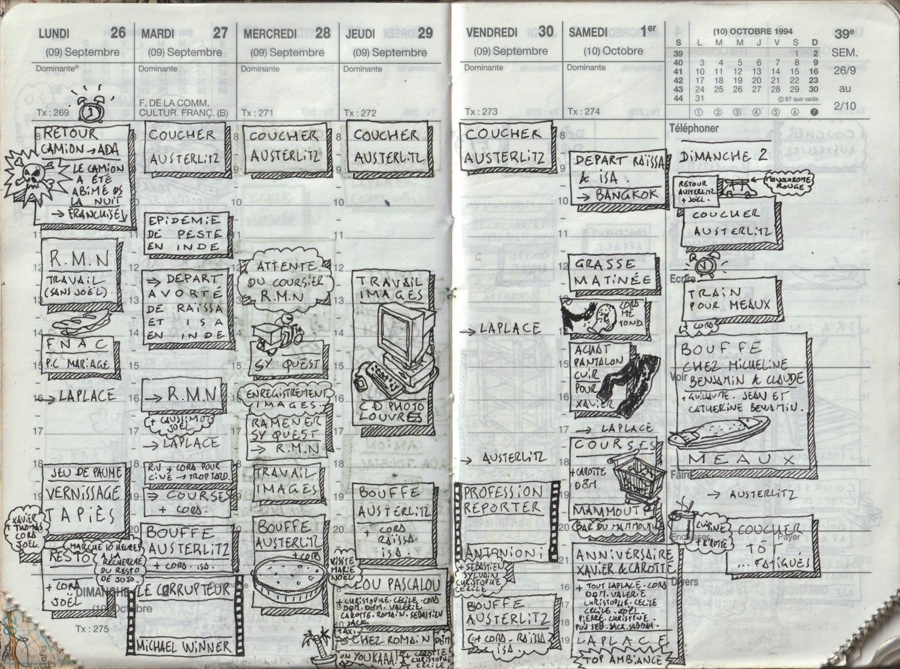 LUNDI 26
(09) Septembre
Dominante®
Tx : 269
8
RETOUR
CAMION → ADA
LE CAMION
A ÉTÉ
ABIMÉ DS
LA NUIT
→ FRANCHISE
11
R.M.N
TRAVAIL
(SANS JOËL)
FNAC
P.C MARIAGE
→ LAPLACE
17
JEU DE PAUME
VERNISSAGE
TAPIÈS
XAVIER
THOMAS
CORA
JOËL
RESTO
MARCHE 10 HEURES
A LA
RECHERCHE
DU RESTO
DE JOJO.
+ CORA
JOËL
DIMANCHE
Tx : 275
MARDI 27
(09) Septembre
Dominante
F. DE LA COMM.
CULTUR. FRANÇ. (B)
COUCHER
AUSTERLITZ
EPIDEMIE
DE PESTE
EN INDE
⇒ DEPART
AVORTÉ
DE RAÏSSA
ET ISA
EN INDE
→ R.M.N
JOËL
→ LAPLACE
R.V + CORA POUR
CINÉ → TROP TARD
→ COURSES
+ CORA.
BOUFFE
AUSTERLITZ
+ CORA. ISA.
LE CORRUPTEUR
MICHAEL WINNER
MERCREDI 28
(09) Septembre
Dominante
Tx : 271
8
COUCHER
AUSTERLITZ
9
10
11
ATTENTE
DU COURSIER
R.M.N
SY QUEST
ENREGISTREMENT
IMAGES.
RAMENER
SY QUEST
→ R.M.N
TRAVAIL
IMAGES
BOUFFE
AUSTERLITZ
+ CORA
JEUDI 29
(09) Septembre
Dominante
Tx : 272
8
COUCHER
AUSTERLITZ
TRAVAIL
IMAGES
CD PHOTO
LOUVRES
BOUFFE
AUSTERLITZ
+ CORA
RAÏSSA
ISA.
ZOU PASCALOU
CHEZ ROMAIN
VENDREDI 30
(09) Septembre
Dominante
Tx : 273
COUCHER
AUSTERLITZ
→ LAPLACE
→ AUSTERLITZ
PROFESSION
REPORTER
ANTONIONI
+ SEBASTIEN
SYLVAIN
CHRISTOPHE
CECILE
BOUFFE
AUSTERLITZ
+ CORA. RAÏSSA
ISA.
SAMEDI 1er
(10) Octobre
Dominante
Tx : 274
8
DEPART RAÏSSA
& ISA.
→ BANGKOK
10
11
GRASSE
MATINÉE
CORA
ME
TOND.
ACHAT
PANTALON
CUIR
POUR
XAVIER
→ LAPLACE
COURSES
+ CAROTTE
DOM
MAMMOUTH
BAR DU MAMMOUTH
ANNIVERSAIRE
XAVIER & CAROTTE
+ TOUT LAPLACE. CORA
DOM. VALERIE
CHRISTOPHE. CECILE
LAPLACE
TOP AMBIANCE
(10) OCTOBRE 1994
S L M M J V S D
39 1 2
40 3 4 5 6 7 8 9
41 10 11 12 13 14 15 16
42 17 18 19 20 21 22 23
43 24 25 26 27 28 29 30
44 31 © 97 quo vadis
39e
SEM.
26/9
au
2/10
Téléphoner
DIMANCHE 2
RETOUR
AUSTERLITZ
+ JOËL.
MONOCHROME
ROUGE
COUCHER
AUSTERLITZ
Ecrire
TRAIN
POUR MEAUX
CORA
Voir
BOUFFE
CHEZ MICHELINE
BENJAMIN & CLAUDE
+ GUILLAUME. JEAN ET
CATHERINE BENJAMIN.
MEAUX
Faire
→ AUSTERLITZ
COUCHER
TÔ
...FATIGUÉS
Payer
Divers